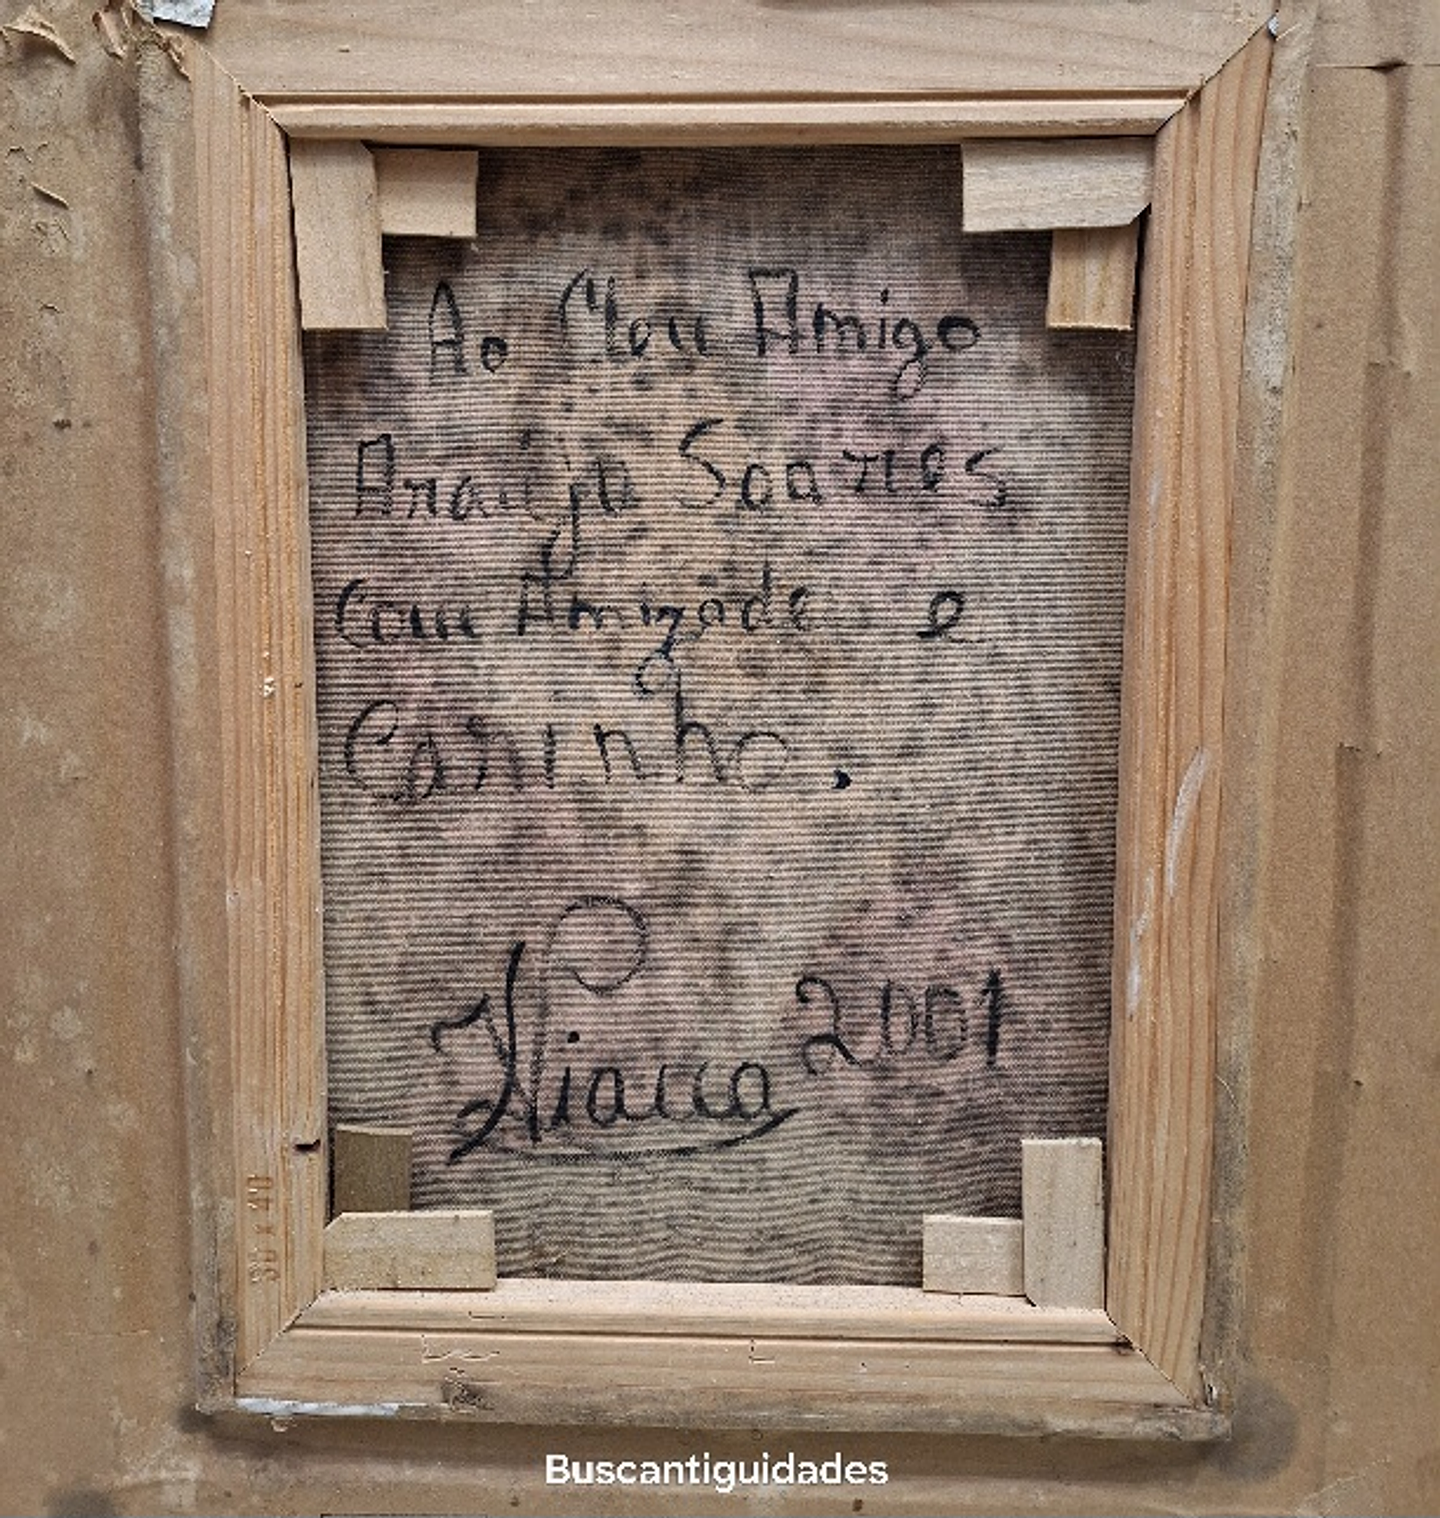 Ao Meu Amigo
Araújo Soares
Com Amizade e
Carinho.
2001
30 x 40
Buscantiguidades